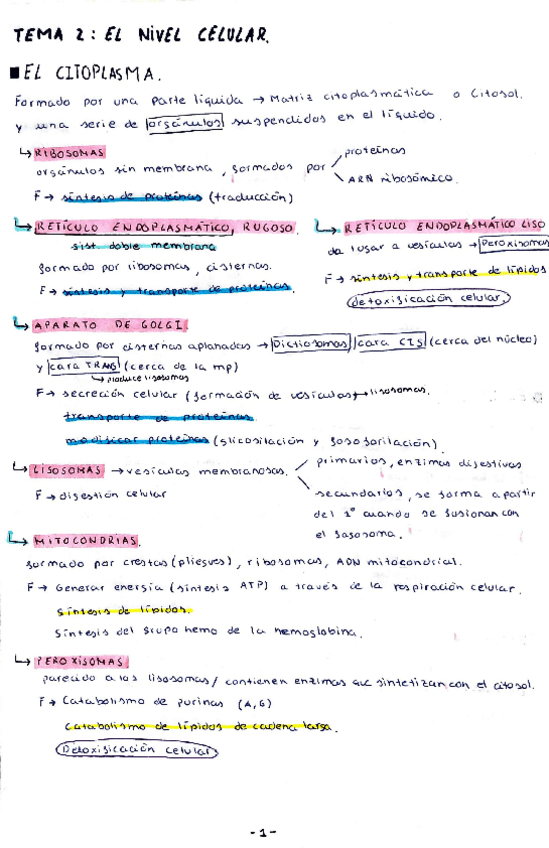 TEMA 2: EL NIVEL CELULAR.
■ EL CITOPLASMA.
Formado por una parte líquida → Matriz citoplasmática o Citosol.
y una serie de orgánulos suspendidos en el líquido.
↳ RIBOSOMAS
orgánulos sin membrana, formados por
proteínas
ARN ribosómico.
F → síntesis de proteínas (traducción)
↳ RETÍCULO ENDOPLASMÁTICO, RUGOSO.
sist. doble membrana
formado por ribosomas, cisternas.
F → síntesis y transporte de proteínas.
↳ RETÍCULO ENDOPLASMÁTICO LISO
da lugar a vesículas → Peroxisomas
F → síntesis y transporte de lípidos
detoxificación celular
↳ APARATO DE GOLGI
formado por cisternas aplanadas → Dictiosomas / cara CIS (cerca del núcleo)
y cara TRANS (cerca de la mp)
↳ produce lisosomas
F → secreción celular (formación de vesículas) → lisosomas.
transporte de proteínas
modificar proteínas (glicosilación y fosoforilación)
↳ LISOSOMAS → vesículas membranosas.
primarios, enzimas digestivas
secundarios, se forma a partir
del 1º cuando se fusionan con
el fagosoma.
F → digestión celular
↳ MITOCONDRIAS.
formado por crestas (pliegues), ribosomas, ADN mitocondrial.
F → Generar energía (síntesis ATP) a través de la respiración celular.
Síntesis de lípidos.
Síntesis del grupo hemo de la hemoglobina.
↳ PEROXISOMAS
parecido a los lisosomas / contienen enzimas que sintetizan con el citosol.
F → Catabolismo de purinas (A, G)
Catabolismo de lípidos de cadena larga.
Detoxificación celular
-1-